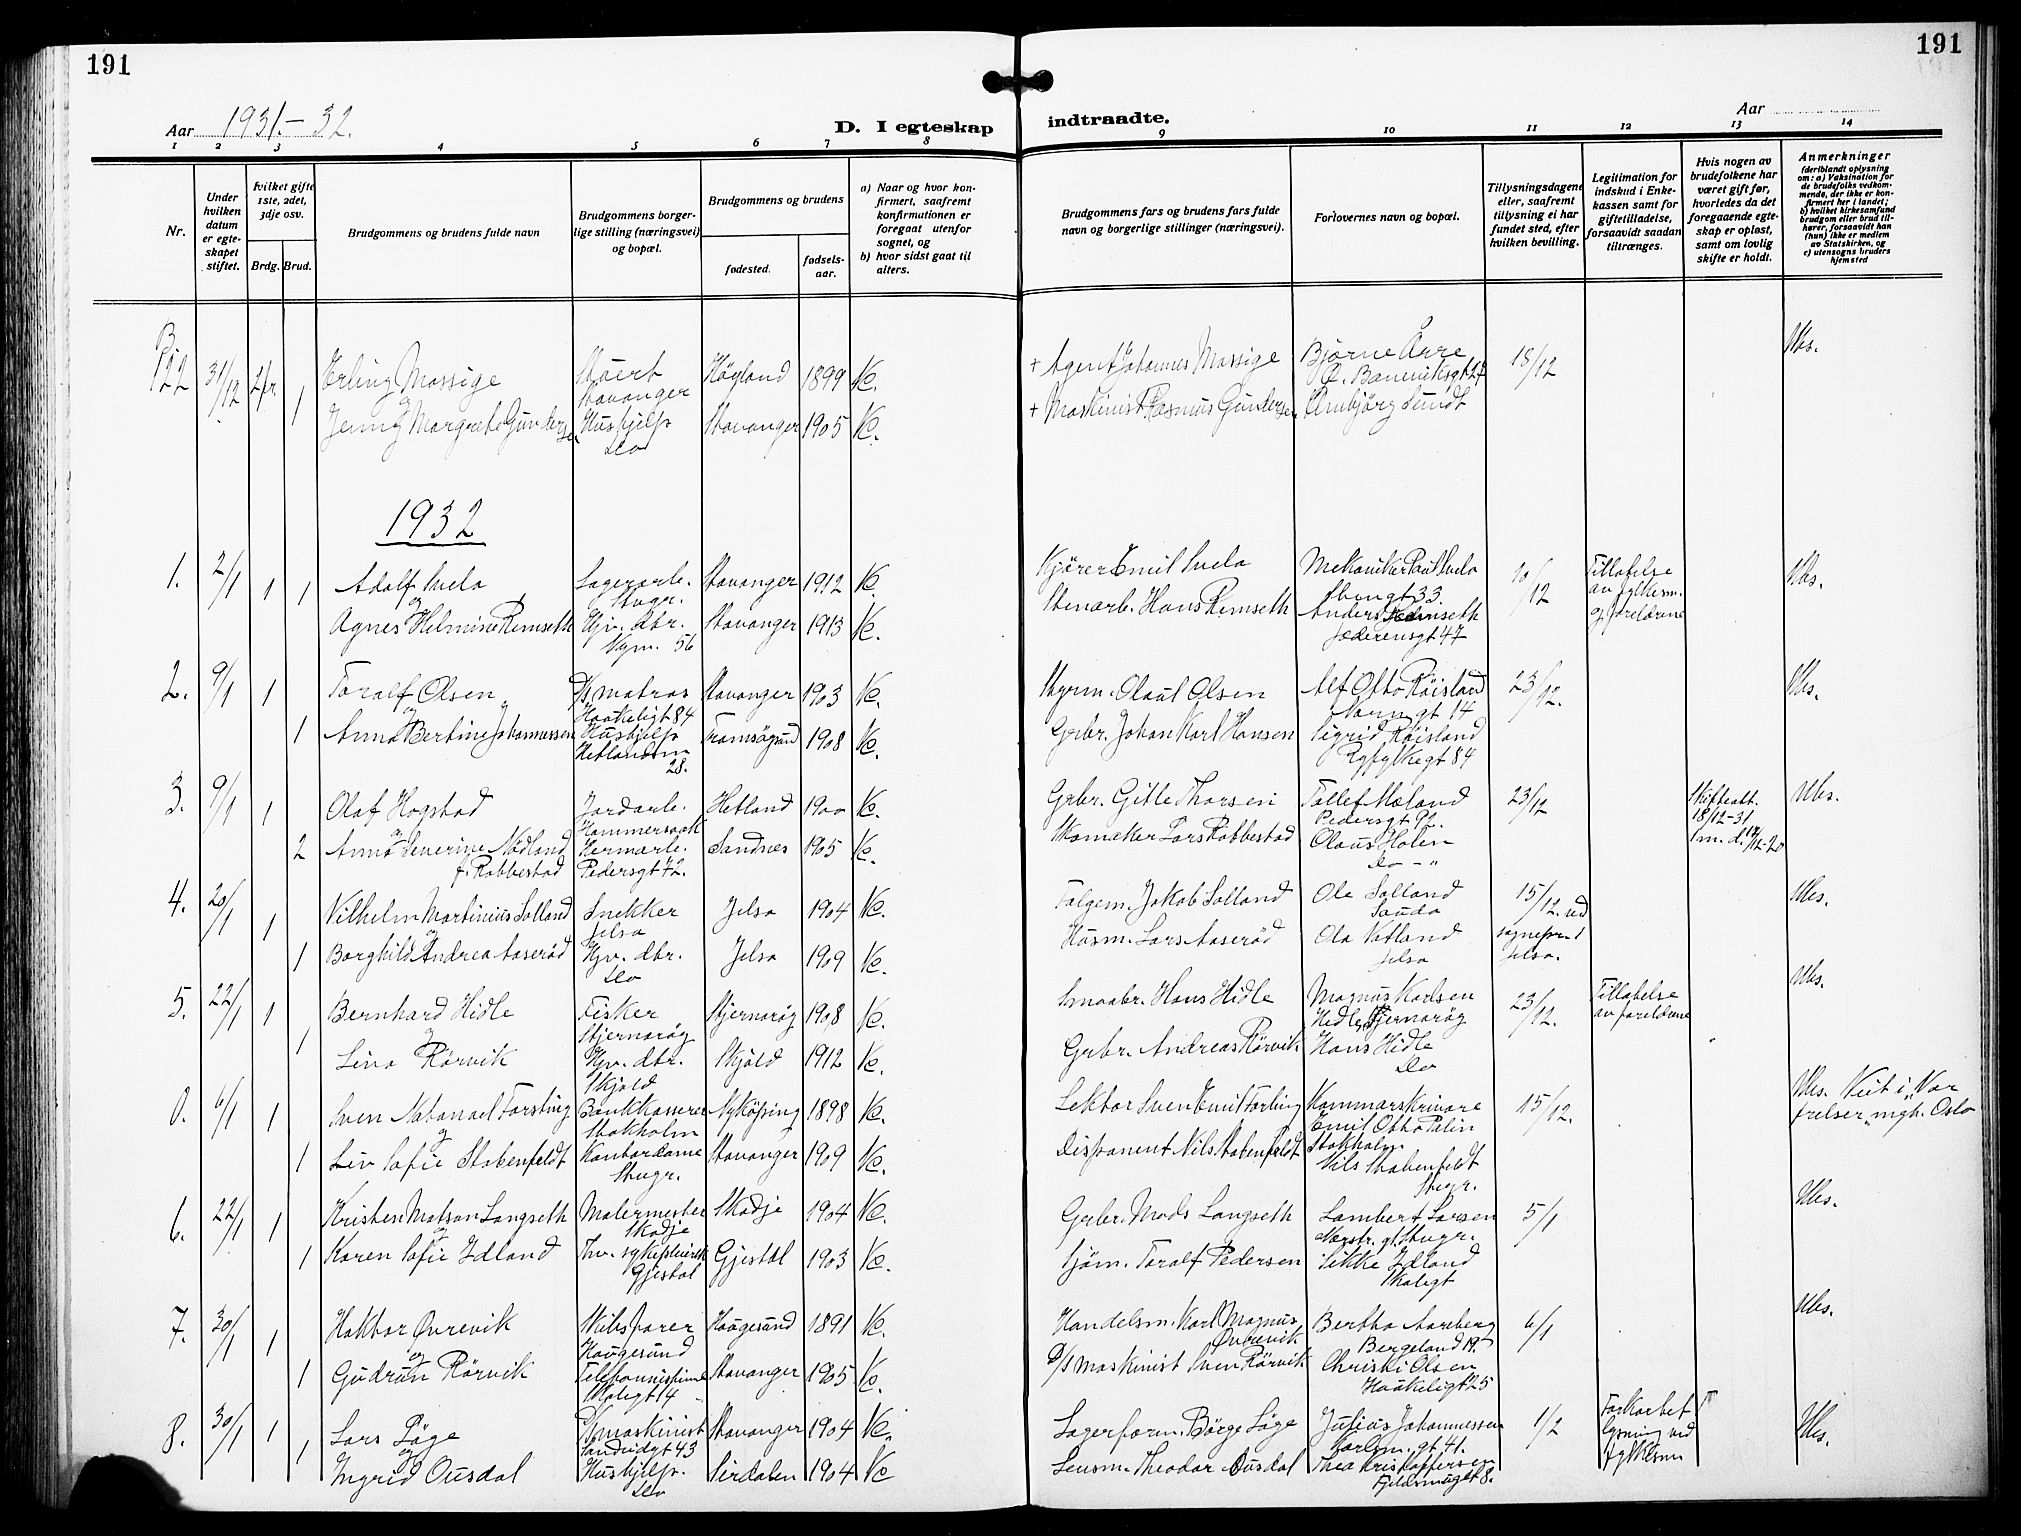 191
191
Aar 1931.-32.
D. I egteskap indtraadte.
Aar
1 2 3 4 5 6 7 8 9 10 11 12 13 14
Nr.
Under hvilken datum er egteskapet stiftet.
hvilket gifte 1ste, 2det, 3dje osv.
Brdg. Brud.
Brudgommens og brudens fulde navn
Brudgommens borgerlige stilling (næringsvei) og bopæl.
Brudgommens og brudens
fødested.
fødselsaar.
a) Naar og hvor konfirmert, saafremt konfirmationen er foregaat utenfor sognet, og
b) hvor sidst gaat til alters.
Brudgommens fars og brudens fars fulde navn og borgerlige stillinger (næringsvei).
Forlovernes navn og bopæl.
Tillysningsdagene eller, saafremt tillysning ei har fundet sted, efter hvilken bevilling.
Legitimation for indskud i Enkekassen samt for giftetilladelse, forsaavidt saadan tiltrænges.
Hvis nogen av brudefolkene har været gift før, hvorledes da det foregaaende egteskap er opløst, samt om lovlig skifte er holdt.
Anmerkninger (deriblandt oplysning om: a) Vaksination for de brudefolks vedkommende, der ikke er konfirmert her i landet; b) hvilket kirkesamfund brudgom eller brud tilhører, forsaavidt han (hun) ikke er medlem av Statskirken, og c) utensogns bruders hjemsted
122 31/12 2 fr. Erling Massige Stavanger Høyland 1899 + Agent Johannes Massige Bjørne Åree 18/12
og
1 Jenny Margrete Gundersen Hushjelp do Stavanger 1905 + Maskinist Rasmus Gundersen Arnbjørg Lundt
1932
1. 2/1 1 1 Adolf Svela Lagerarb. Stvgr. Stavanger 1912 Kjører Emil Svela Mekaniker Paul Svela 33. Tillatelse av fylkesm. og foreldrene
og
Agnes Helmine Remseth Hjv. dtr. Nym. 56 Stavanger 1913 Stenarb. Hans Remseth Anders Remseth Jæderensgt 47
2. 9/1 1 Toralf Olsen D/s matros Haakeligt 84 Stavanger 1903 Styrm. Olaul Olsen Alf Otto Røisland gt 14 23/12.
og
1 Anna Bertine Johannessen Hushjelp Hetlandsm 28. Tromsøysund 1908 Grbr. Johan Karl Hansen Sigrid Røisland Ryfylkegt 84
3. 9/1 1 Olaf Hogstad Jordarb. Hammersaak Hetland 1900 Grbr. Gitle Thorsen Tollef Mæland Pedersgt 92. 23/12 Skifteatt. 18/12-31
og
2 Anna Severine Nødland f. Robbestad Hermarb. Pedersgt 72. Sandnes 1905 Skomaker Lars Robbestad Olaus Holen Do - "
4. 20/1 1 Vilhelm Martinius Solland Snekker Jelsa Jelsa 1904 Jakob Solland Ole Solland Sauda 15/12. ved sognepr. i Jelsa.
og
1 Borghild Andrea Aaserød Hjv. dtr. do Jelsa 1909 Husm. Lars Aaserød Ola Vatland Jelsa
5. 22/1 1 Bernhard Hidle Fisker Stjernarøy Stjernarøy 1908 Smaabr. Hans Hidle Magnus Karlsen Hidle, Stjernarøy 23/12. Tillatelse av foreldrene
og
1 Lina Rørvik Hjv. dtr. Skjold Skjold 1912 Grbr. Andreas Rørvik Hans Hidle do
0. 6/1 1 Sven Natanael Forsling Bankkasserer Stokholm Nykøping 1898 Lektor Sven Emil Forsling Kammarskrivare Emil Otto Palin Stokholm 15/12. Viet i "Vor frelser" mgh. Oslo
og
1 Liv Sofie Stabenfeldt Kontordame Stvgr. Stavanger 1909 Disponent Nils Stabenfeldt Nils Stabenfeldt Stvgr.
6. 22/1 1 Kristen Matson Langseth Malermester Skodje Skodje 1904 Grbr. Mads Langseth Lambert Larsen gt. Stvgr. 5/1
og
1 Karen Sofie Idland sykepleierske Gjestal Gjestal 1903 Sjøm. Toralf Pedersen Sikke Idland Skolegt
7. 30/1 1 Haktor Øvrevik Skibsfører Haugesund Haugesund 1891 Handelsm. Karl Magnus Øvrevik Bertha Aarberg Bergeland 19. 6/1
og
1 Gudrun Rørvik Telefonistinne Skolegt 14 Stavanger 1905 D/s maskinist Sven Rørvik Christi Olsen Haakeligt 25
8. 30/1 1 1 Lars Løge D/s maskinist Sandvidgt 43 Stavanger 1904 Lagerform. Børge Løge Julius Johannessen Karlsm. gt 41. 1/2 Forkortet lysning ved fylkesm
og
Ingrid Ousdal Hushjelp. do Sirdalen 1904 Lensm. Theodor Ousdal Thea Kristoffersen 8.